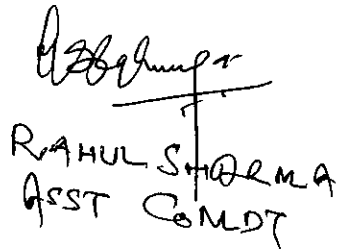 RAHUL SHARMA
ASST COMDT